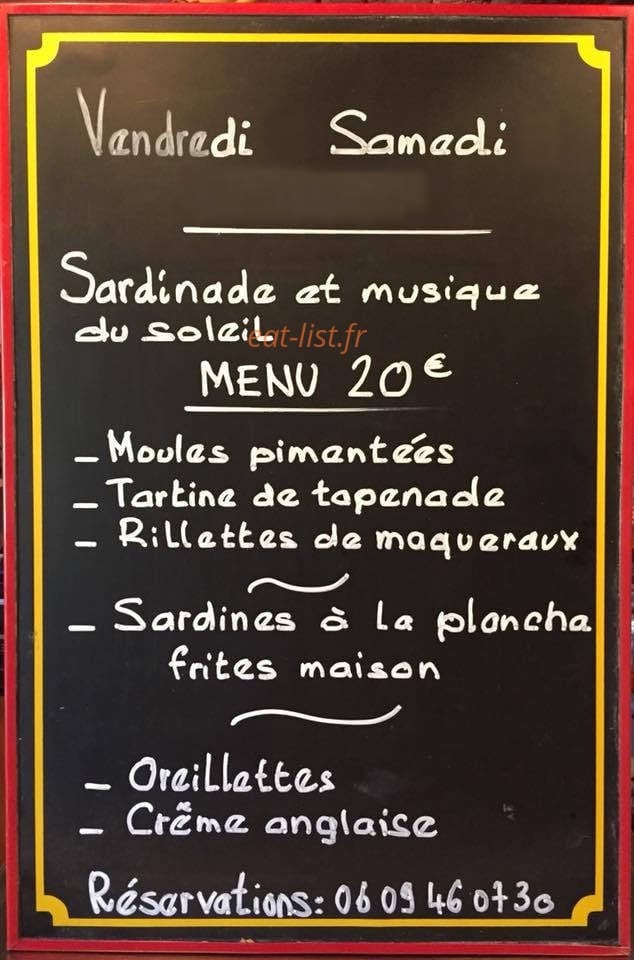 Vendredi Samedi
Sardinade et musique
du soleil
eat-list.fr
MENU 20€
- Moules pimentées
- Tartine de tapenade
- Rillettes de maqueraux
- Sardines à la plancha
frites maison
- Oreillettes
- Crème anglaise
Réservations: 06 09 46 07 30